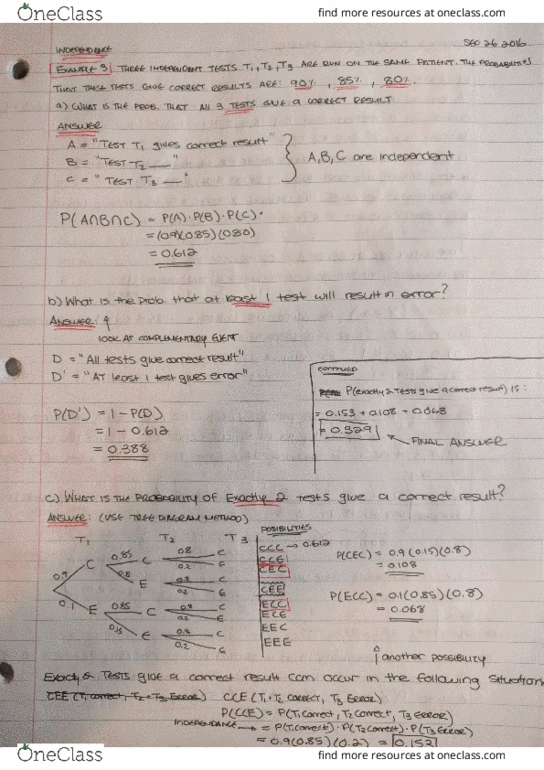 OneClass
find more resources at oneclass.com
SEP 26 2016
INDEPENDENCE
EXAMPLE 9| THREE INDEPENDENT TESTS T1, T2, T3 ARE RUN ON THE SAME PATIENT. THE PROBABILITIES
THAT THESE TESTS GIVE CORRECT RESULTS ARE: 90%, 85%, 80%.
a) WHAT IS THE PROB. THAT All 3 TESTS GIVE A CORRECT RESULT
ANSWER
A = "TEST T1 gives correct result"
B = "TEST T2 — "
C = " TEST T3 — "
A, B, C are independent
P(A∩B∩C) = P(A)·P(B)·P(C)·
= (0.9)(0.85)(0.80)
= 0.612
b) What is the prob. that at least 1 test will result in error?
ANSWER:
LOOK AT COMPLEMENTARY EVENT
D = "All tests give correct result"
D' = "AT least 1 test gives error"
P(D') = 1 - P(D)
= 1 - 0.612
= 0.388
CONTINUED
P(exactly 2 Tests give a correct result) IS:
= 0.153 + 0.108 + 0.068
= 0.329
FINAL ANSWER
c) WHAT IS THE PROBABILITY OF Exactly 2 tests give a correct result?
ANSWER: (USE TREE DIAGRAM METHOD)
T1 T2 T3
POSIBILITIES
0.9 C 0.85 C 0.8 C
0.2 E
E 0.8 C
0.2 E
0.1 E 0.85 C 0.8 C
0.2 E
0.15 E 0.8 C
0.2 E
CCC → 0.612
CCE
CEC
CEE
ECC
ECE
EEC
EEE
P(CEC) = 0.9(0.15)(0.8)
= 0.108
P(ECC) = 0.1(0.85)(0.8)
= 0.068
another possibility
Exactly 2 TESTS give a correct result can occur in the following situation
CEE (T1 correct, T2 + T3 ERROR) CCE (T1 + T2 CORRECT, T3 ERROR)
P(CCE) = P(T1 correct, T2 correct, T3 ERROR)
INDEPENDANCE → = P(T1 correct)·P(T2 correct)·P(T3 ERROR)
= 0.9(0.85)(0.2) = 0.153
OneClass
find more resources at oneclass.com